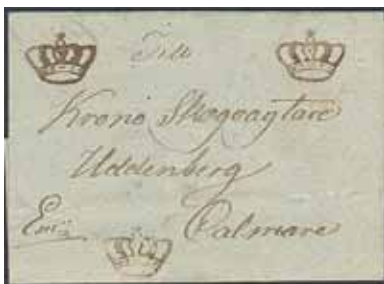 Till
Krono Skogvagtare
Uddenberg
Calmare